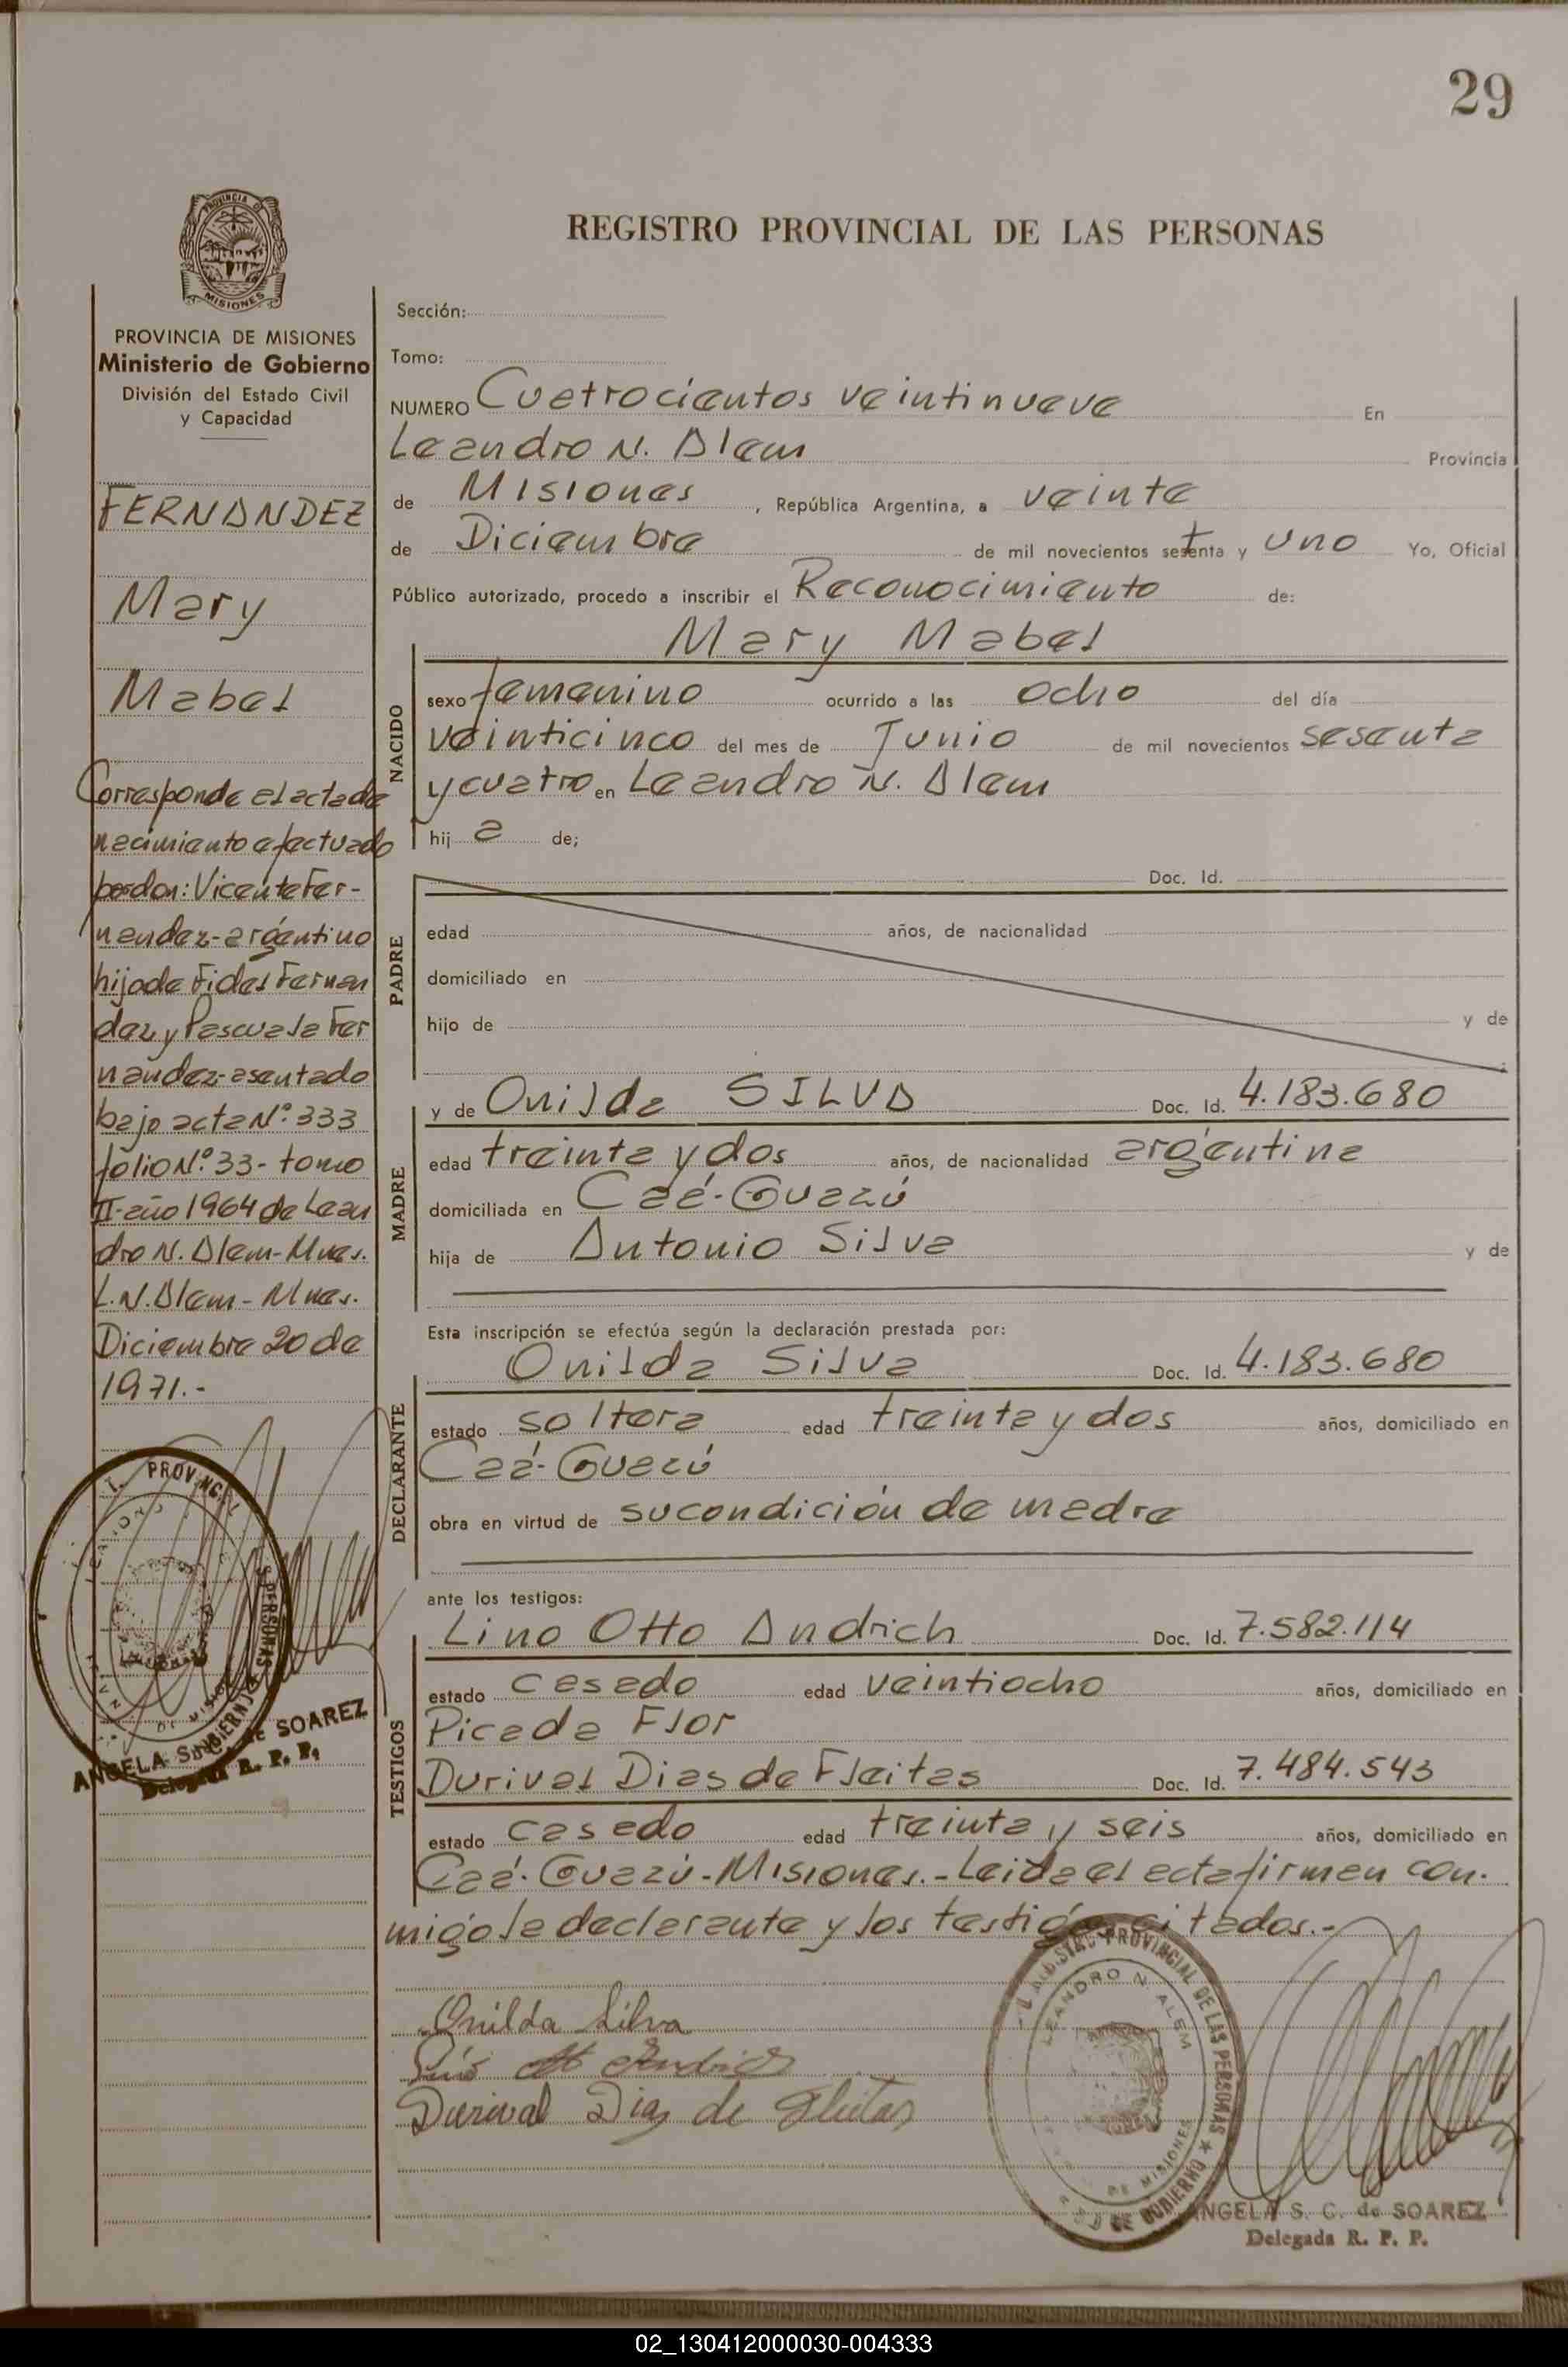 29
REGISTRO PROVINCIAL DE LAS PERSONAS
PROVINCIA DE MISIONES
Ministerio de Gobierno
División del Estado Civil
y Capacidad
FERNANDEZ
Mary
Mabel
Corresponde al acta de
nacimiento efectuado
por don: Vicente Fer-
nandez-argentino
hijo de Fidel Fernan
dez y Pascuala Fer
nandez-asentado
bajo acta Nº. 333
folio Nº. 33- tomo
II-año 1964 de Lean
dro N. Alem-Mnes.
L.N. Alem-Mnes.
Diciembre 20 de
1971.-
ANGELA S. C. de SOAREZ
Delegada R. P. P.
Sección:
Tomo:
NUMERO Cuatrocientos veintinueve En
Leandro N. Alem Provincia
de Misiones, República Argentina, a veinte
de Diciembre de mil novecientos setenta y uno Yo, Oficial
Público autorizado, procedo a inscribir el Reconocimiento de:
Mary Mabel
NACIDO
sexo femenino ocurrido a las ocho del día
veinticinco del mes de Junio de mil novecientos sesenta
y cuatro en Leandro N. Alem
hij a de;
PADRE
Doc. Id.
edad años, de nacionalidad
domiciliado en
hijo de y de
MADRE
y de Onilda SILVA Doc. Id. 4.183.680
edad treinta y dos años, de nacionalidad argentina
domiciliada en Caá-Guazú
hija de Antonio Silva y de
Esta inscripción se efectúa según la declaración prestada por:
DECLARANTE
Onilda Silva Doc. Id. 4.183.680
estado soltera edad treinta y dos años, domiciliado en
Caá-Guazú
obra en virtud de su condición de madre
ante los testigos:
TESTIGOS
Lino Otto Andrich Doc. Id. 7.582.114
estado casado edad veintiocho años, domiciliado en
Picada Flor
Durival Dias de Fleitas Doc. Id. 7.484.543
estado casado edad treinta y seis años, domiciliado en
Caá-Guazú-Misiones.-Leida el acta firman con-
migo la declarante y los testigos citados.-
Onilda Silva
Durival Dias de Fleitas
REGISTRO PROVINCIAL DE LAS PERSONAS
LEANDRO N. ALEM
DE MISIONES
ANGELA S. C. de SOAREZ
Delegada R. P. P.
02_130412000030-004333